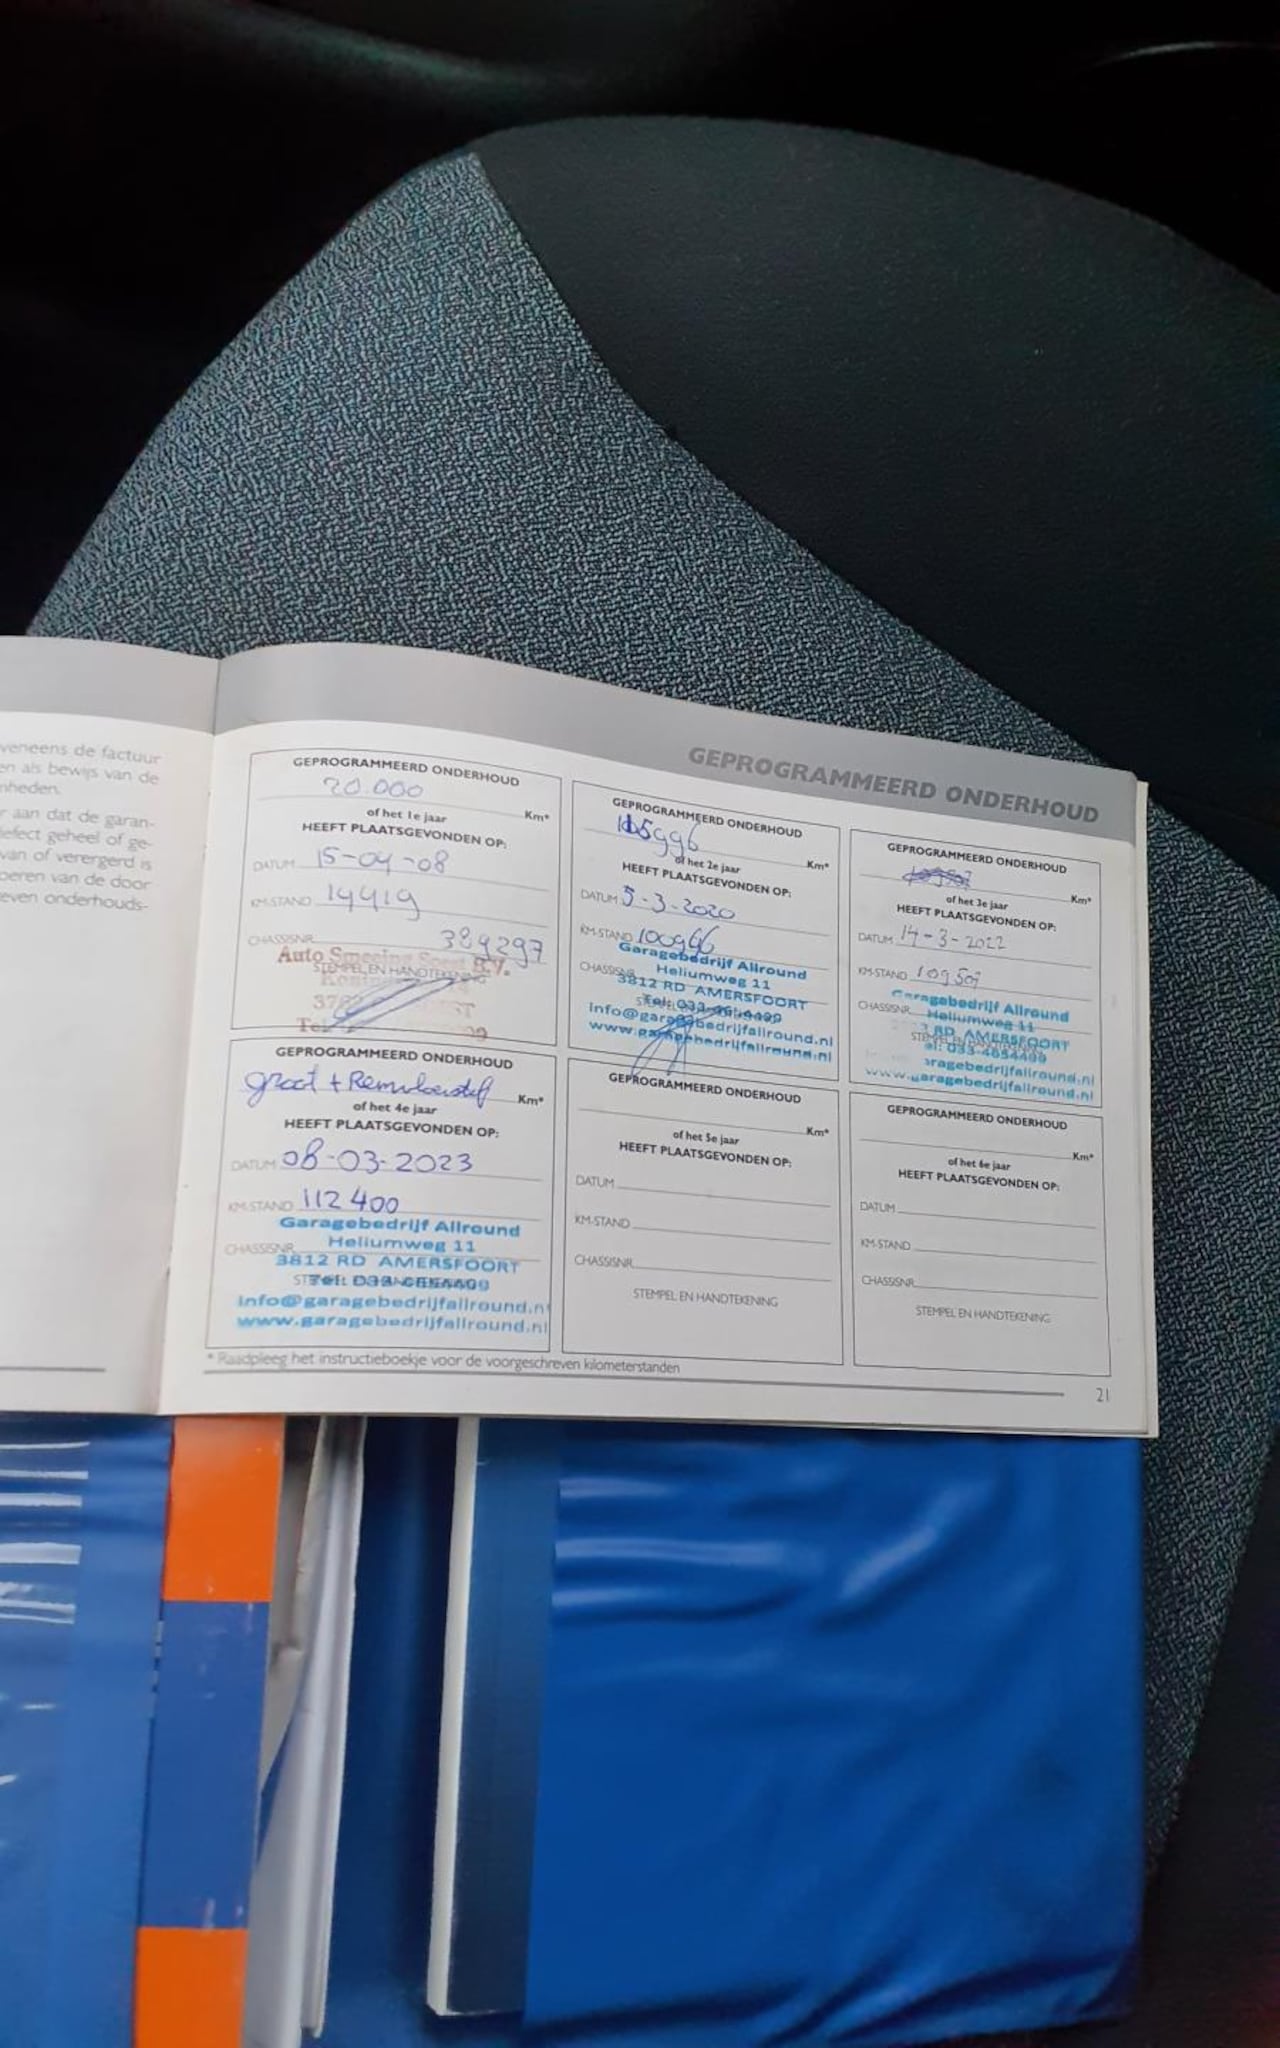 veneens de factuur
en als bewijs van de
nheden.
r aan dat de garan-
efect geheel of ge-
van of verergerd is
oeren van de door
even onderhouds-
GEPROGRAMMEERD ONDERHOUD
GEPROGRAMMEERD ONDERHOUD
20.000
Km*
of het 1e jaar
HEEFT PLAATSGEVONDEN OP:
DATUM 15-04-08
KM-STAND 14419
CHASSISNR. 389297
STEMPEL EN HANDTEKENING
GEPROGRAMMEERD ONDERHOUD
Km*
of het 2e jaar
HEEFT PLAATSGEVONDEN OP:
DATUM 5-3-2020
KM-STAND 100996
CHASSISNR.
Garagebedrijf Allround
Heliumweg 11
3812 RD AMERSFOORT
Tel: 033-4654499
info@garagebedrijfallround.nl
www.garagebedrijfallround.nl
GEPROGRAMMEERD ONDERHOUD
Km*
of het 3e jaar
HEEFT PLAATSGEVONDEN OP:
DATUM 14-3-2022
KM-STAND 109507
CHASSISNR.
Garagebedrijf Allround
Heliumweg 11
RD AMERSFOORT
el: 033-4654499
aragebedrijfallround.nl
www.garagebedrijfallround.nl
GEPROGRAMMEERD ONDERHOUD
groot + Remvloeistof Km*
of het 4e jaar
HEEFT PLAATSGEVONDEN OP:
DATUM 08-03-2023
KM-STAND 112400
CHASSISNR.
Garagebedrijf Allround
Heliumweg 11
3812 RD AMERSFOORT
Tel: 033-4654499
info@garagebedrijfallround.n
www.garagebedrijfallround.nl
GEPROGRAMMEERD ONDERHOUD
Km*
of het 5e jaar
HEEFT PLAATSGEVONDEN OP:
DATUM
KM-STAND
CHASSISNR.
STEMPEL EN HANDTEKENING
GEPROGRAMMEERD ONDERHOUD
Km*
of het 6e jaar
HEEFT PLAATSGEVONDEN OP:
DATUM
KM-STAND
CHASSISNR.
STEMPEL EN HANDTEKENING
* Raadpleeg het instructieboekje voor de voorgeschreven kilometerstanden
21